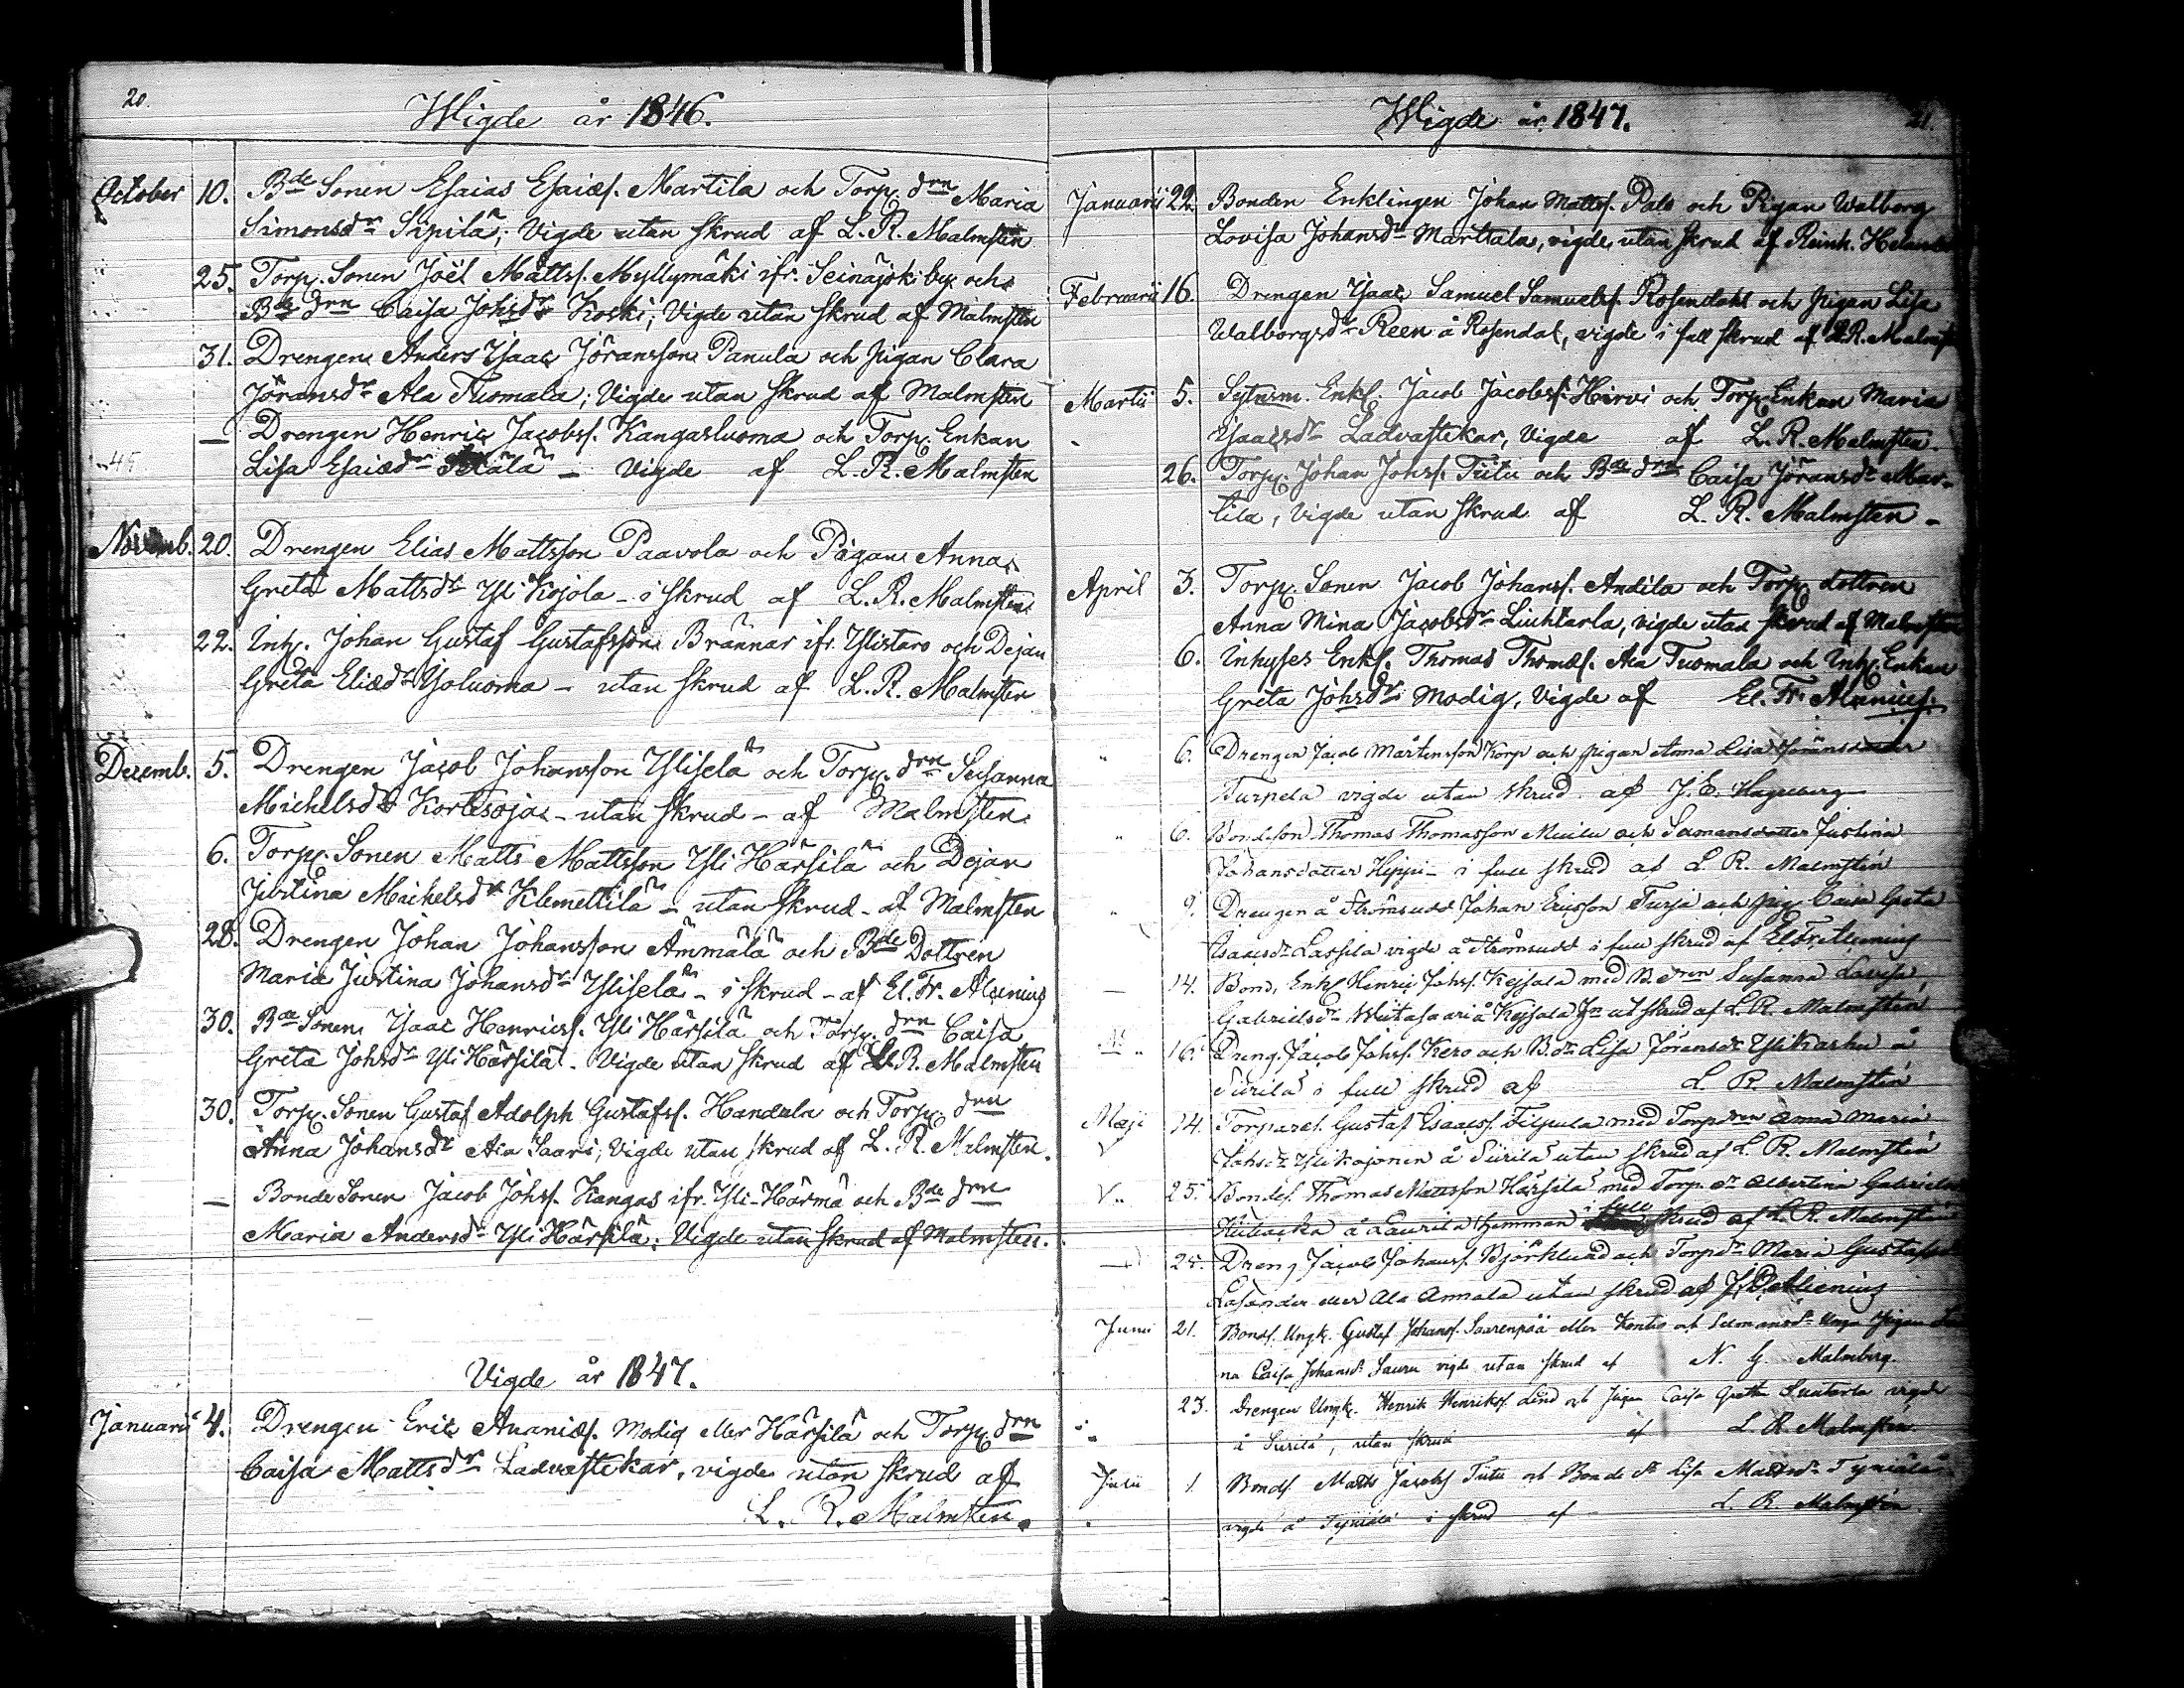 20.
Wigde år 1846.
October 10. Bde Sonen Esaias Esaiæs. Martila och Torp. drn Maria
Simonsdr Sipilä; Vigde utan skrud af L. R. Malmsten
25. Torp. Sonen Joël Mattss. Myllymäki ifr. Seinäjoki by och
Bde drn Caisa Johsdr Koski; Vigde utan skrud af Malmsten
31. Drengen Anders Isaac Jöransson Panula och pigan Clara
Jöransdr Ala Tuomala; Vigde utan skrud af Malmsten
— Drengen Henric Jacobss. Kangasluoma och Torp. Enkan
Lisa Esaiædr – Vigde af L. R. Malmsten
Novemb. 20. Drengen Elias Mattsson Paavola och Pigan Anna
Greta Mattsdr Yli Kojola – i skrud af L. R. Malmsten
22. Inh. Johan Gustaf Gustafsson Brännar ifr. Ylistaro och Dejan
Greta Eliædr Joluoma – utan skrud af L. R. Malmsten
Decemb. 5. Drengen Jacob Johansson Yliselä och Torp. drn Susanna
Michelsdr Kortesoja – utan skrud – af Malmsten.
6. Torp. Sonen Matts Mattsson Yli Härsilä och Dejan
Justina Michelsdr Klemettilä – utan skrud – af Malmsten
28. Drengen Johan Johansson Ämmälä och Bde Dottren
Maria Justina Johansdr Yliselä – i skrud – af El. Fr. Alcenius
30. Bde Sonen Isaac Henricss. Yli Härsilä och Torp. drn Caisa
Greta Johsdr Yli Härsilä. Vigde utan skrud af L. R. Malmsten
30. Torp. Sonen Gustaf Adolph Gustafss. Handula och Torp. drn
Anna Johansdr Ala Saari; Vigde utan skrud af L. R. Malmsten.
— Bonde Sonen Jacob Johss. Kangas ifr. Yli-Härmä och Bde drn
Maria Andersdr Yli Härsilä: Vigde utan skrud af Malmsten.
Vigde år 1847.
Januarii 4. Drengen Eric Ananiæs. Modig eller Härsilä och Torp. drn
Caisa Mattsdr Ladvastekar, vigde utan skrud af
L. R. Malmsten.
Wigde år 1847.
21.
Januarii 22. Bonden Enklingen Johan Mattss. Palo och Pigan Walborg
Lovisa Johansdr Marttala, vigde utan skrud af Reinh.
Februarii 16. Drengen Isaac Samuel Samuelss. Rosendahl och pigan Lisa
Walborgsdr Reen å Rosendal, vigde i full skrud af L. R. Malmsten
Martii 5. Sytnsm. Enkl. Jacob Jacobss. Hirvi och Torp. Enkan Maria
Isaacsdr Ladvastekar, Vigde af L. R. Malmsten.
26. Torp. Johan Johss. Tiitu och Bde drn Caisa Jöransdr Mar-
tila, Vigde utan skrud af L. R. Malmsten –
April 3. Torp. Sonen Jacob Johanss. Andila och Torp. dottren
Anna Mina Jacobsdr Liuhtarla, vigde utan skrud af Malmsten
6. Inhyses Enkl. Thomas Thomæs. Ala Tuomala och Inh. Enkan
Greta Johsdr Modig, Vigde af El. Fr. Alcenius.
" 6. Drengen Jacob Mårtensson Korp och pigan Anna Lisa Jöransdotter
Turpela vigde utan skrud af J. E. Hageberg
" 6. Bondeson Thomas Thomasson och Justina
Johansdotter – i full skrud af L. R. Malmstén
" 9. Drengen å Strömsudd Johan Ericsson Turja och pig. Caisa Greta
Isaacsdr Lassila vigde å Strömsudd i full skrud af El. Fr. Alcenius
— 14. Bond. Enkl Henric Johss. Keskala med B. dren Susanna Lovisa
Gabrielsdr Wiitasaari å ut skrud af L. R. Malmstén
" 16. Dreng. Jacob Johss. Kero och B. dr Lisa Jöransdr Yli Karhu å
Siirilä i full skrud af L. R. Malmstén
Maji 14. Torpares. Gustaf Isaacss. Filpula med Torp dren Anna Maria
Johsdr Yli Kojonen å Siirilä utan skrud af L. R. Malmstén
V " 25. Bondes. Thomas Mattsson Härsilä med Torp. dr Albertina
å Laurila hemman i full skrud af L. R. Malmstén
— 25. Dreng Jacob Johanss. Björklund och Torp dr Maria
eller Ala Annala utan skrud af Alcenius
Junii 21. Bonds. Ungk. Gustaf Johanss. Saarenpää eller Kontio och
na Caisa Johansdr Sauru vigde utan skrud af N. G. Malmberg.
23. Drengen Ungk. Henrik Henrikss. Lind och pigan Caisa Greta vigde
å Siirilä, utan skrud af L. R. Malmsten.
Julii 1. Bonds. Matts Jacobss Tiitu och Bonde dr Lisa Mattsdr Tyniälä
vigde å Tyniälä i skrud af L. R. Malmstén